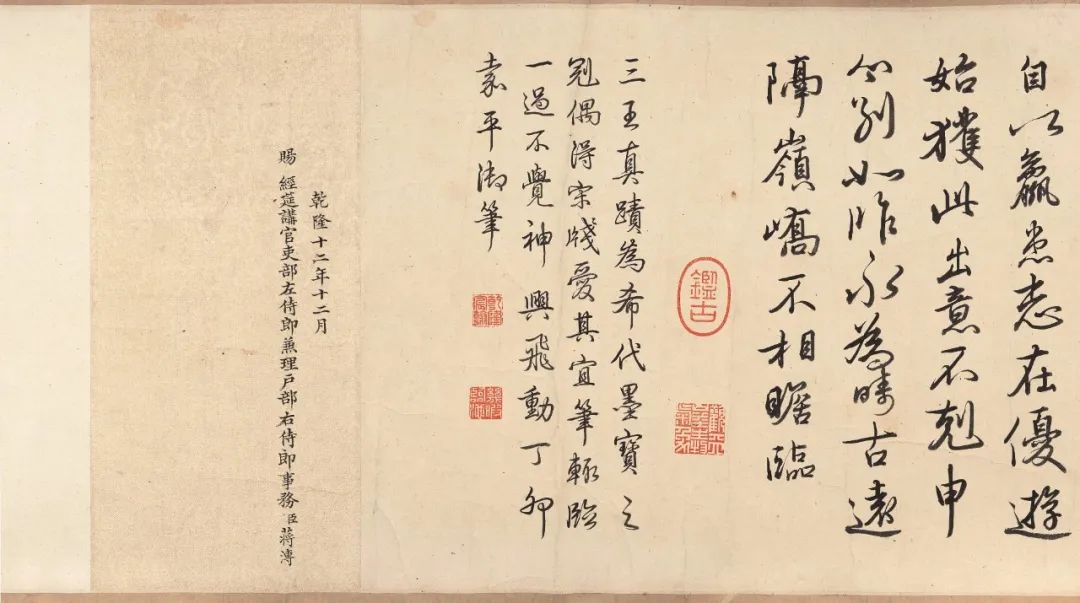 自以羸患志在優遊
始獲此出意不剋申
分别如昨永為疇古遠
隔嶺嶠不相瞻臨
鑑古
三王真蹟為希代墨寶之
冠偶得宋牋愛其宜筆輒臨
一過不覺神興飛動丁卯
嘉平御筆
乾隆宸翰
乾隆十二年十二月
賜 經筵講官吏部左侍郎兼理戶部右侍郎事務臣蔣溥